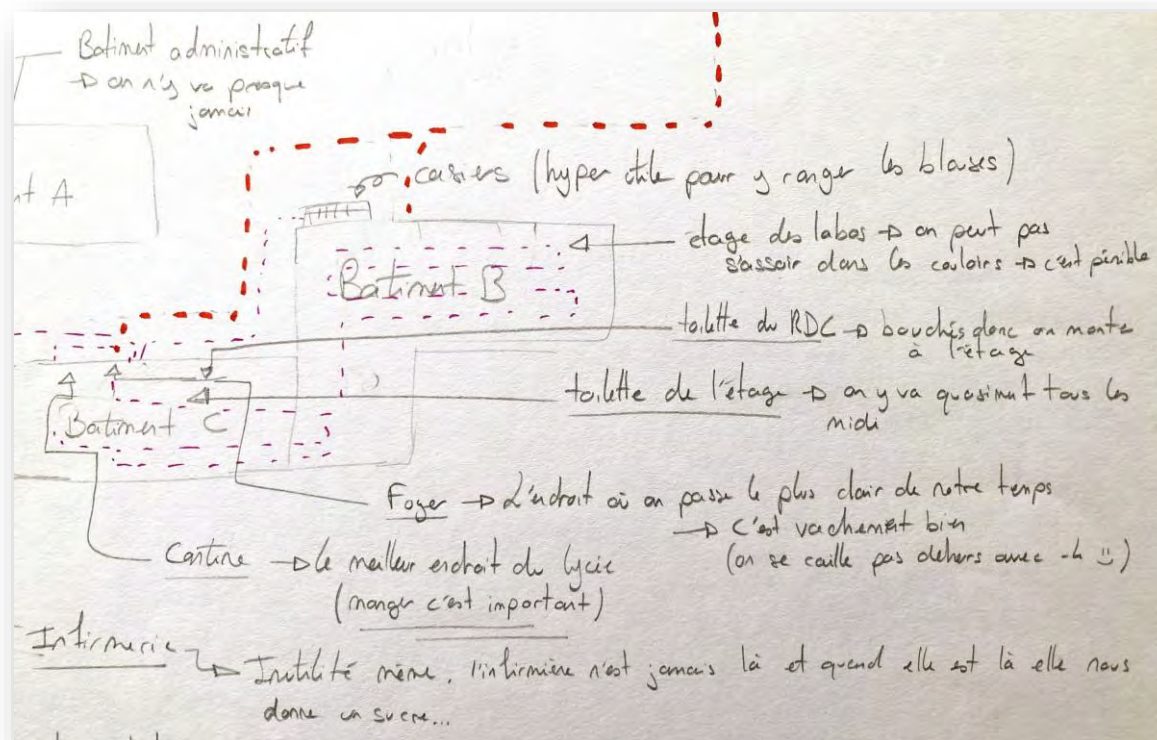 Batiment administratif
→ on n'y va presque
jamais
nt A
casiers (hyper utile pour y ranger les blouses)
etage des labos → on peut pas
s'assoir dans les couloirs → c'est pénible
Bâtiment B
toilette du RDC → bouchés donc on monte
à l'étage
toilette de l'étage → on y va quasiment tous les
midi
Batiment C
Foyer → L'endroit où on passe le plus clair de notre temps
→ C'est vachement bien
(on se caille pas dehors avec -4 :))
Cantine → le meilleur endroit du lycée
(manger c'est important)
Infirmerie
→ Inutilité même. l'infirmière n'est jamais là et quand elle est là elle nous
donne un sucre...